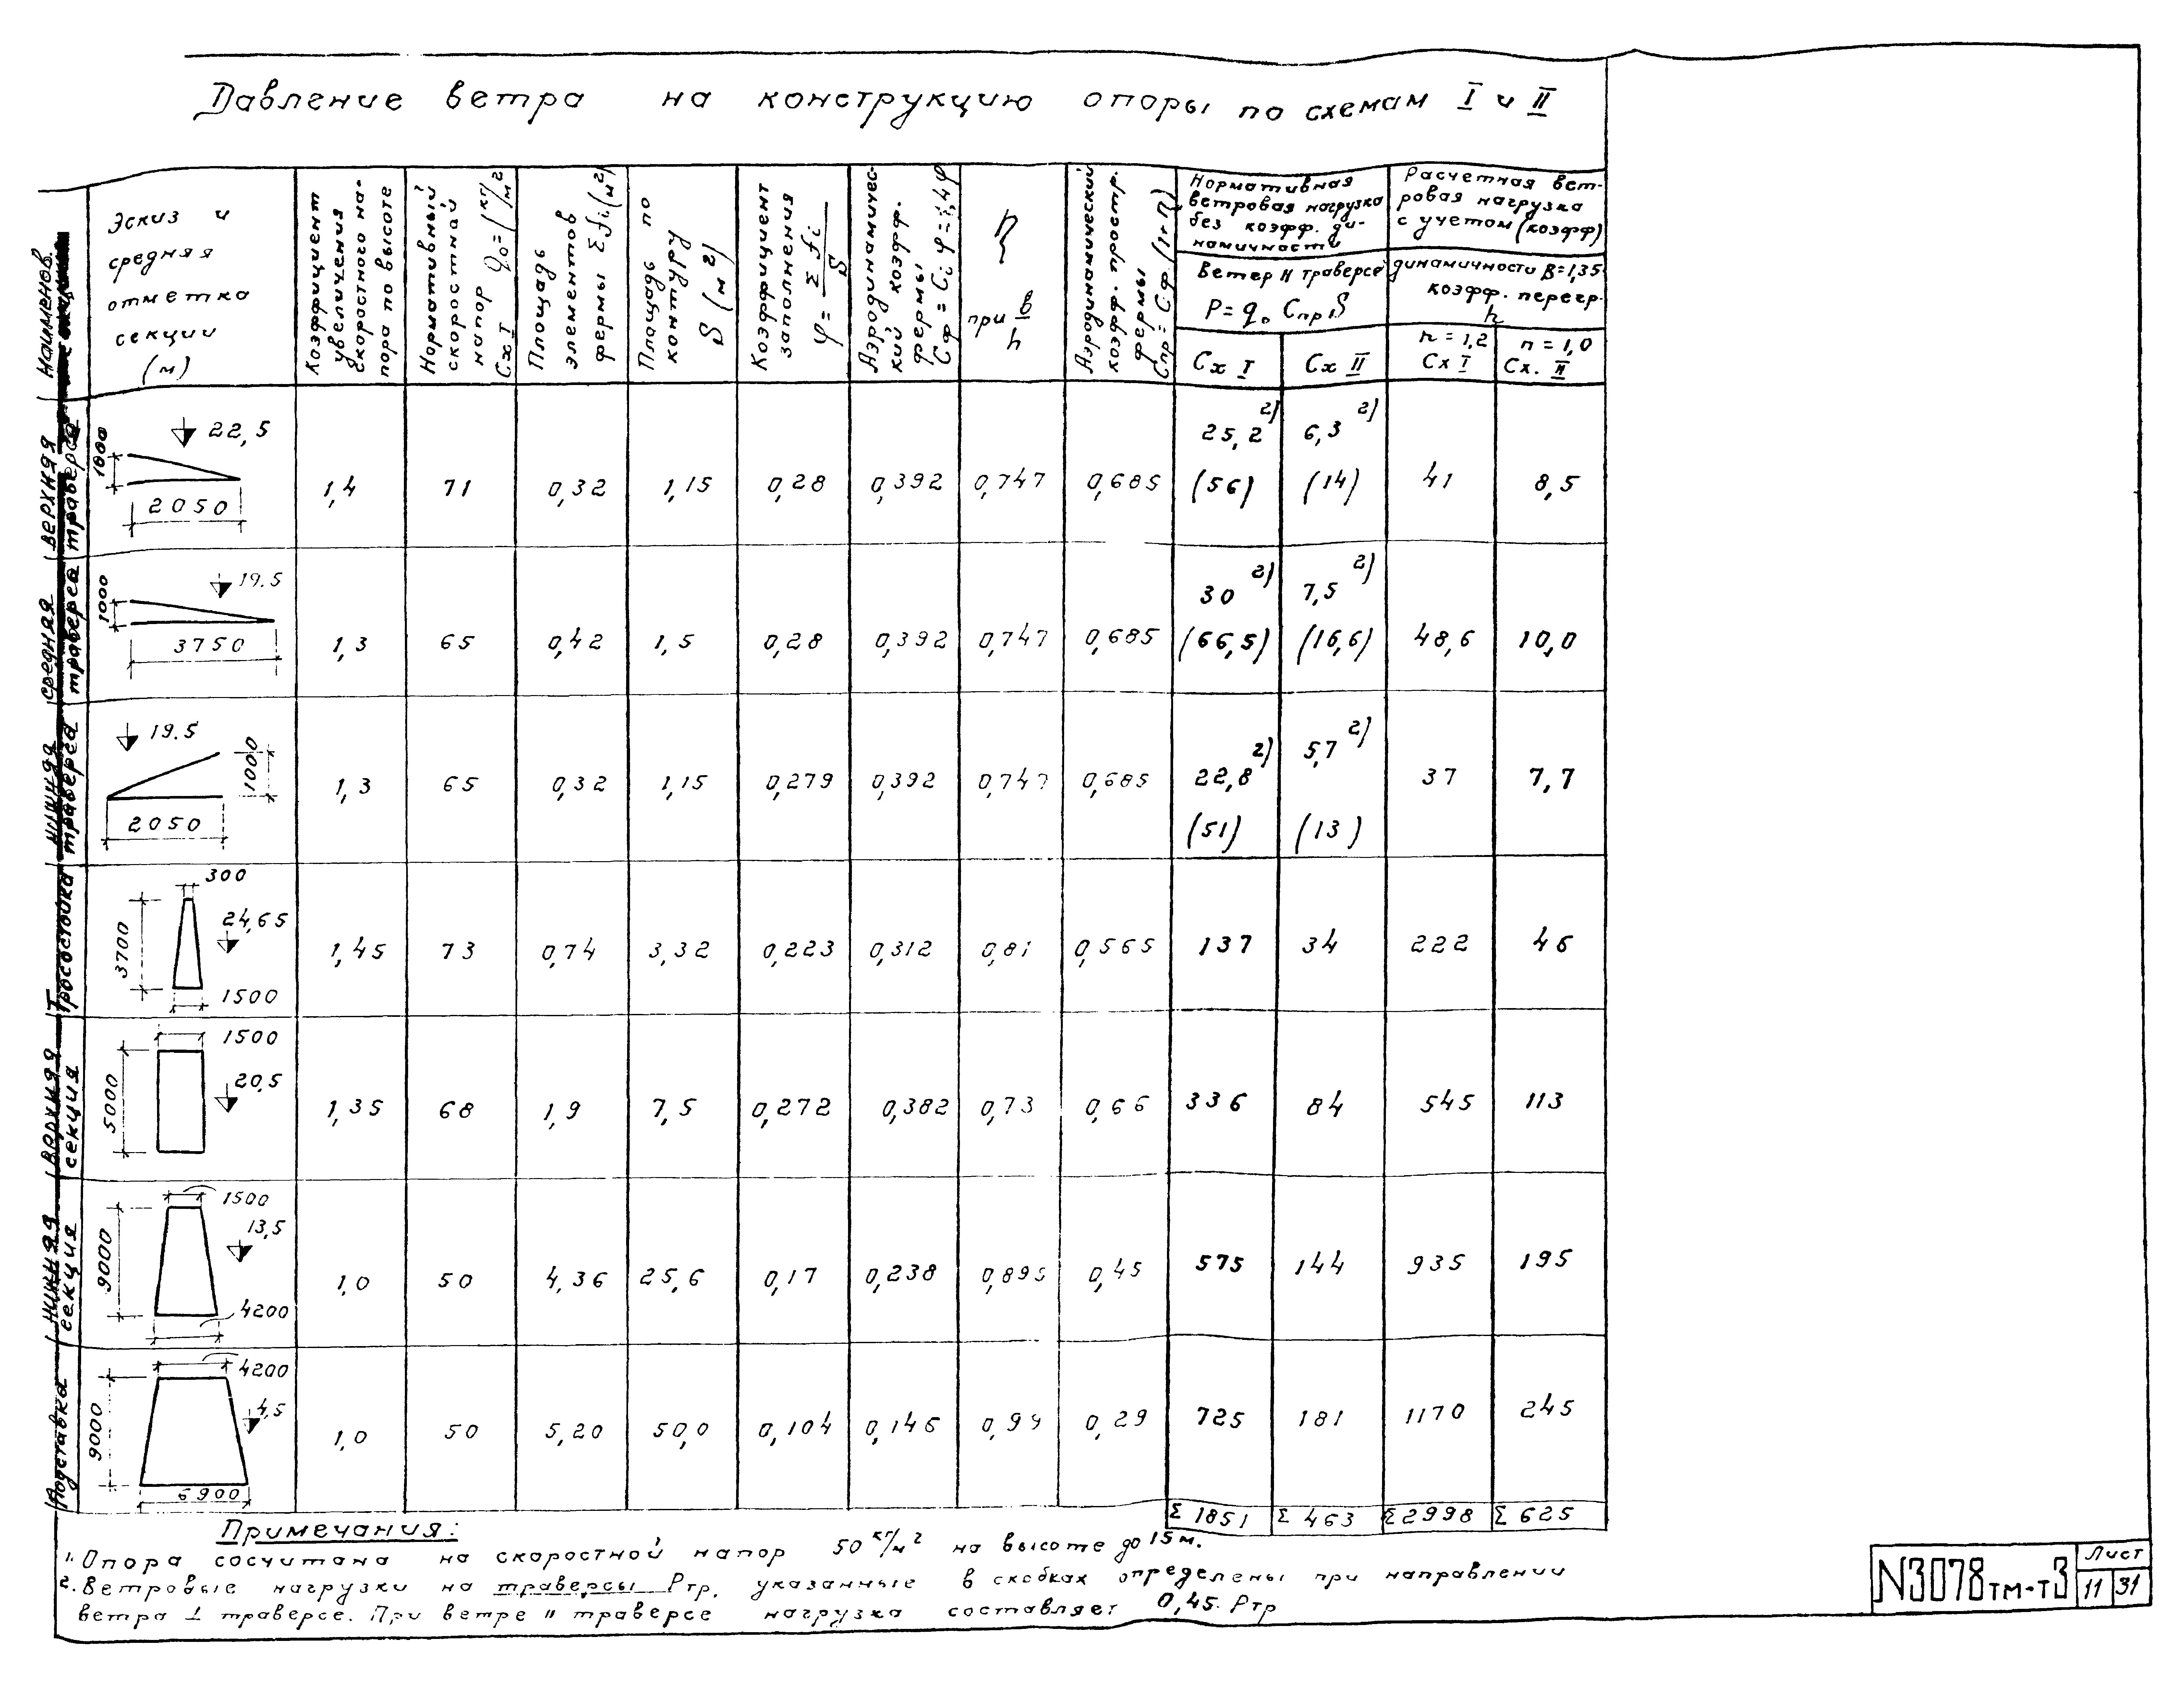 Давление ветра на конструкцию опоры по схемам I и II
Наименов.
Эскиз и
средняя
отметка
секции
(м)
Коэффициент
увеличения
скоростного на-
пора по высоте
Нормативный
скоростной
напор q₀=(кг/м²)
Сх I
Площадь
элементов
фермы Σfi(м²)
Площадь по
контуру
S (м²)
Коэффициент
заполнения
φ= Σfi/S
Аэродинамичес-
кий коэфф.
фермы
Сф=Сi φ=1,4φ
η
при в/h
Аэродинамический
коэфф. простр.
фермы
Спр=Сф(1+η)
Нормативная
ветровая нагрузка
без коэфф. ди-
намичности
Ветер II траверсе
P=q₀ Спр S
Сх I
Сх II
Расчетная вет-
ровая нагрузка
с учетом (коэфф)
динамичности В=1,35
коэфф. перегр.
n
n=1,2
Сх I
n=1,0
Сх. II
Верхняя
траверса
22,5
1000
2050
1,4 71 0,32 1,15 0,28 0,392 0,747 0,685 25,2 2) (56) 6,3 2) (14) 41 8,5
Средняя
траверса
19.5
1000
3750
1,3 65 0,42 1,5 0,28 0,392 0,747 0,685 30 2) (66,5) 7,5 2) (16,6) 48,6 10,0
Нижняя
траверса
19.5
1000
2050
1,3 65 0,32 1,15 0,279 0,392 0,747 0,685 22,8 2) (51) 5,7 2) (13) 37 7,7
Тросостойка
300
24,65
3700
1500
1,45 73 0,74 3,32 0,223 0,312 0,81 0,565 137 34 222 46
Верхняя
секция
1500
20,5
5000
1,35 68 1,9 7,5 0,272 0,382 0,73 0,66 336 84 545 113
Нижняя
секция
1500
13,5
9000
4200
1,0 50 4,36 25,6 0,17 0,238 0,895 0,45 575 144 935 195
Подставка
4200
4,5
9000
6900
1,0 50 5,20 50,0 0,104 0,146 0,99 0,29 725 181 1170 245
Σ 1851 Σ 463 Σ2998 Σ 625
Примечания:
1. Опора сосчитана на скоростной напор 50 кг/м² на высоте до 15 м.
2. Ветровые нагрузки на траверсы Ртр. указанные в скобках определены при направлении
ветра ⊥ траверсе. При ветре II траверсе нагрузка составляет 0,45 Ртр
N3078тм-т3
Лист
11 31